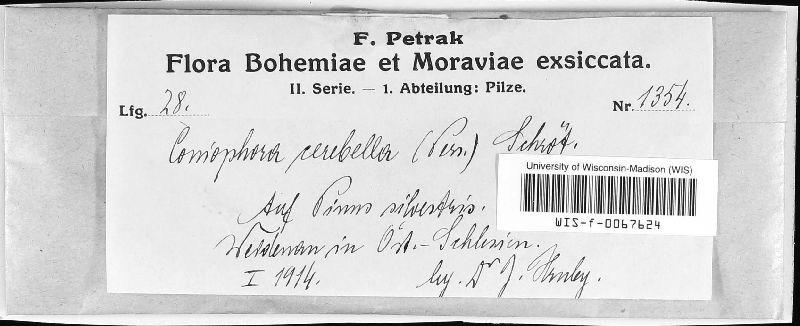 F. Petrak
Flora Bohemiae et Moraviae exsiccata.
II. Serie. — 1. Abteilung: Pilze.
Lfg. 28.
Nr. 1354.
Coniophora cerebella (Pers.) Schröt.
University of Wisconsin-Madison (WIS)
WIS-f-0067624
Auf Pinus silvestris.
Weidenau in Öst.-Schlesien.
I 1914. leg. Dr J. Hruby.